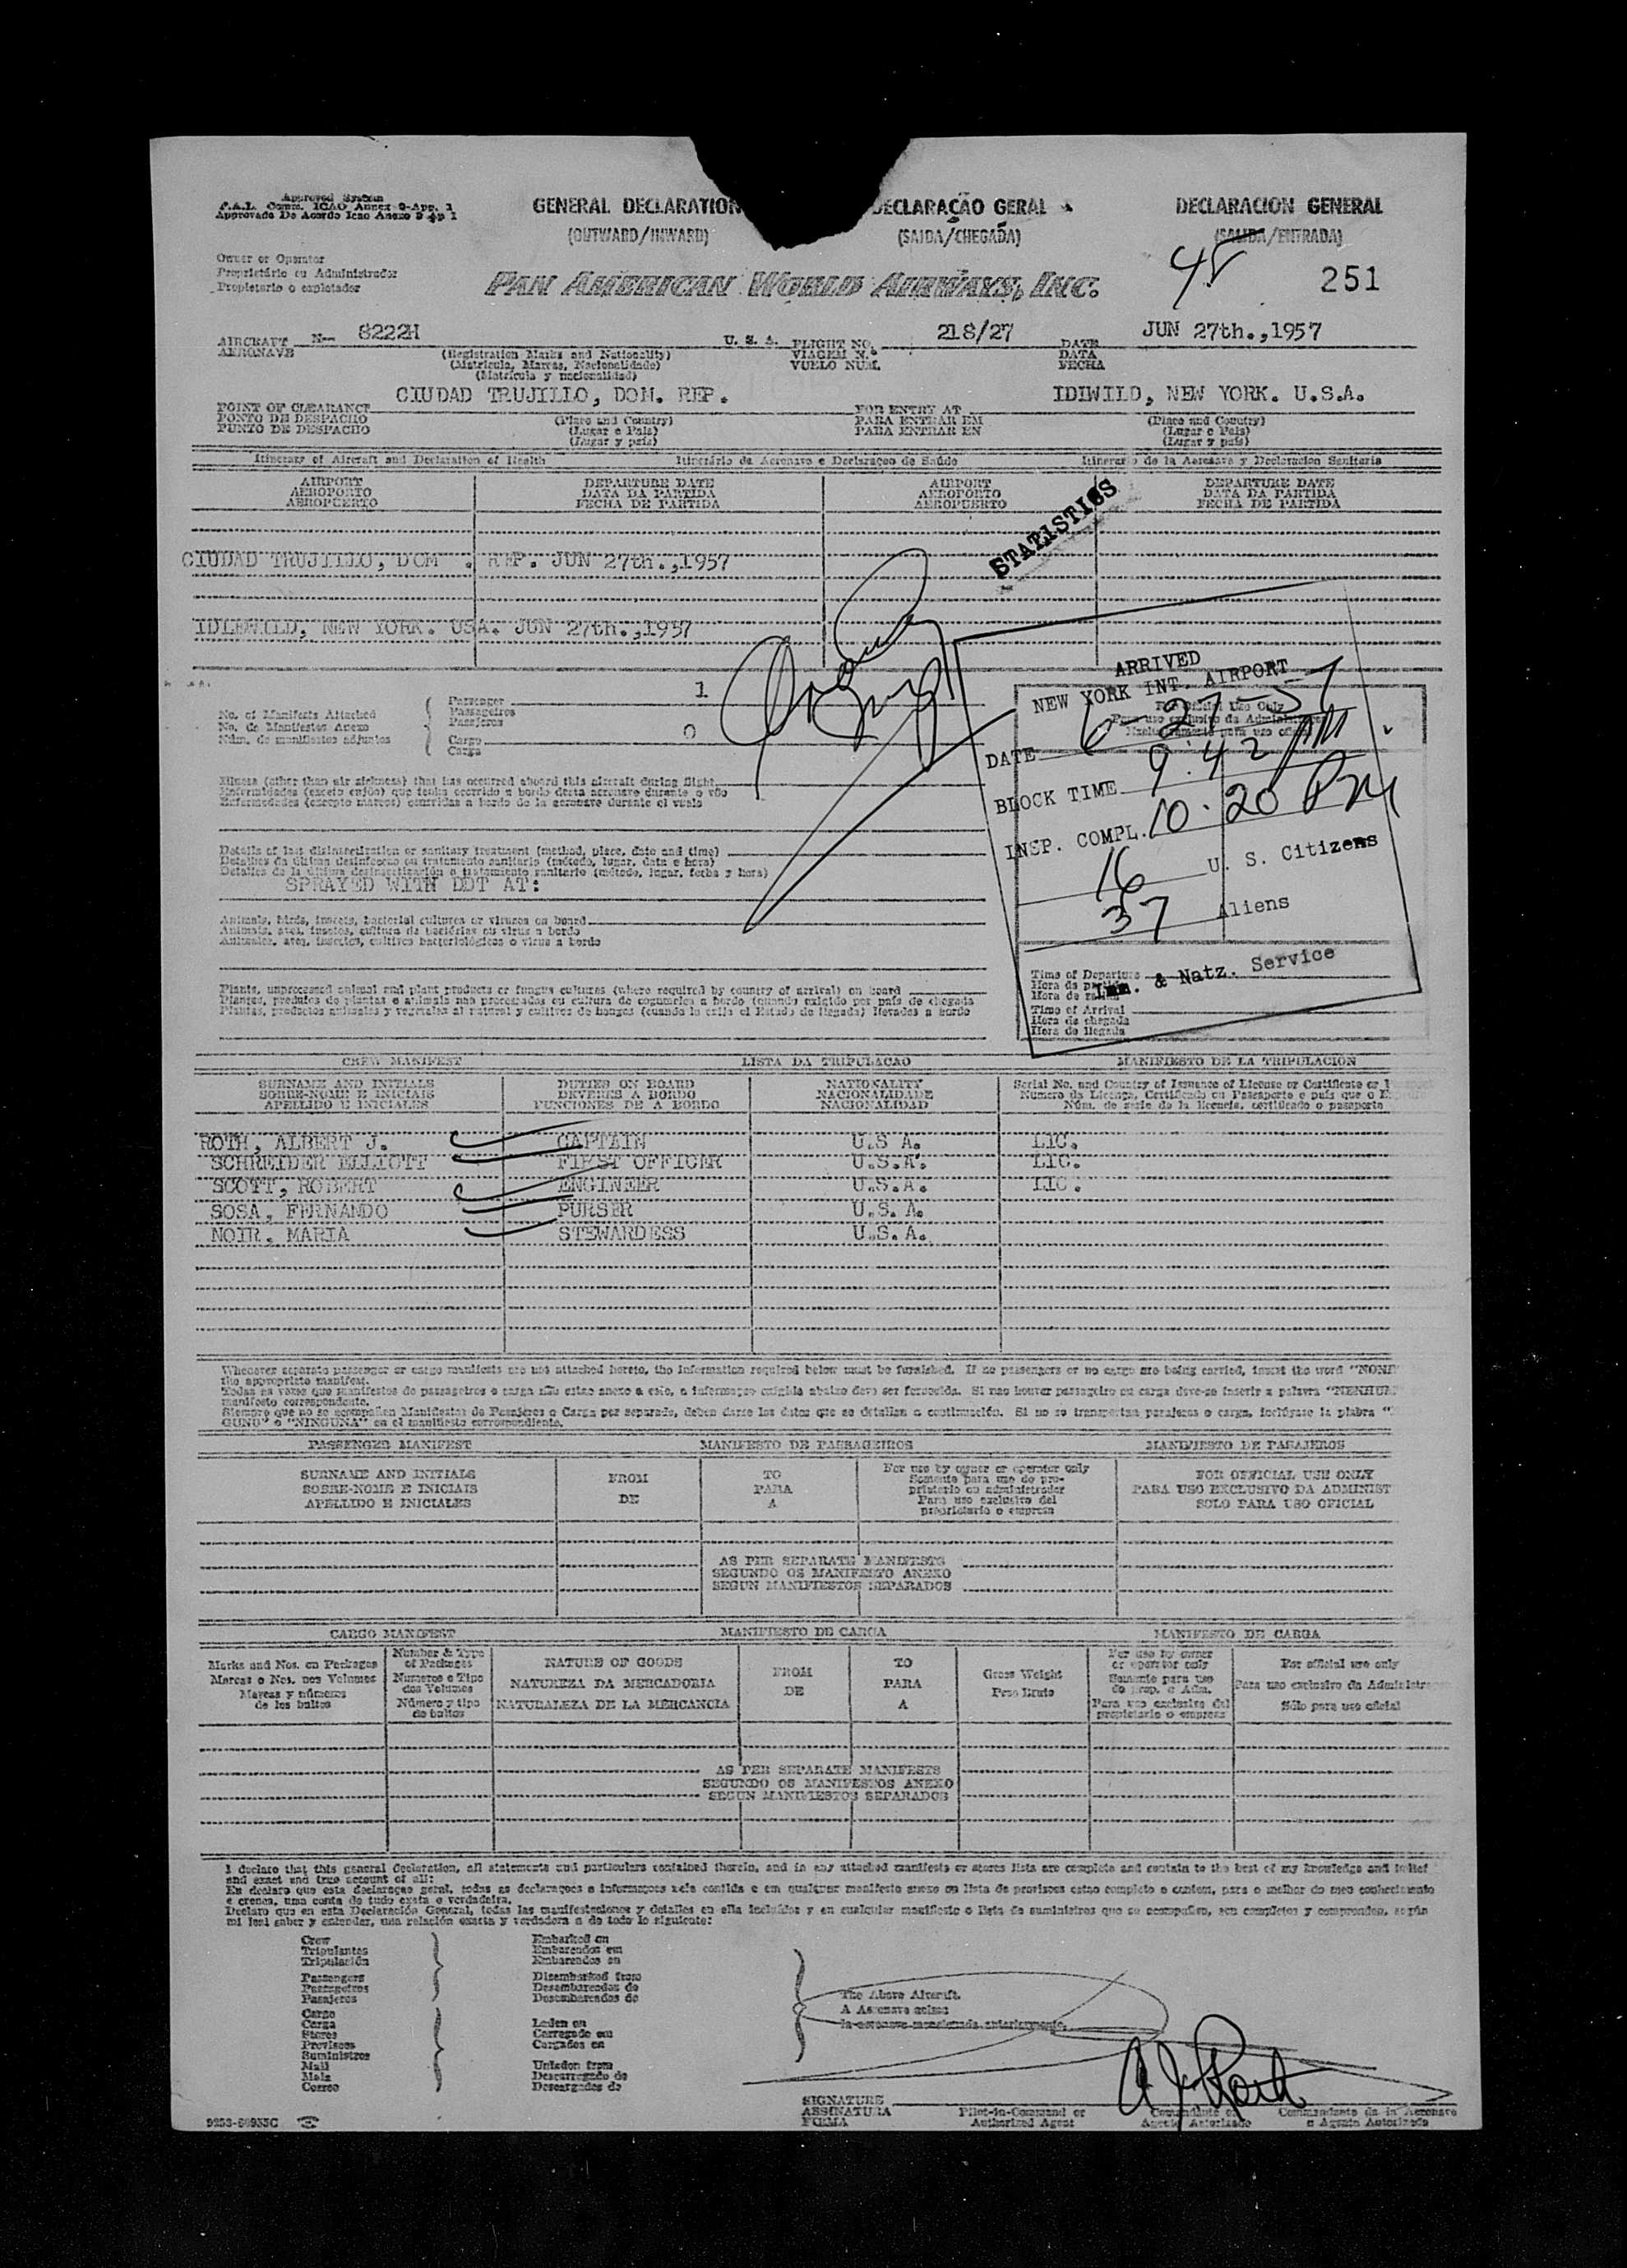 Approved System
F.A.L. Comm. ICAO Annex 9-App. 1
Approvado De Acordo Icao Anexo 9 Ap 1
GENERAL DECLARATION
(OUTWARD/INWARD)
DECLARAÇÃO GERAL
(SAIDA/CHEGADA)
DECLARACION GENERAL
(SALIDA/ENTRADA)
Owner or Operator
Proprietário ou Administrador
Propietario o explotador
PAN AMERICAN WORLD AIRWAYS, INC.
45
251
AIRCRAFT N-- 8222H U. S. A. FLIGHT NO. 218/27 DATE JUN 27th.,1957
AERONAVE (Registration Marks and Nationality) VIAGEM N.º DATA
(Matrícula, Marcas, Nacionalidade) VUELO NUM. FECHA
(Matrícula y nacionalidad)
CIUDAD TRUJILLO, DOM. REP. IDIWILD, NEW YORK. U.S.A.
POINT OF CLEARANCE (Place and Country) FOR ENTRY AT (Place and Country)
PONTO DE DESPACHO (Lugar e País) PARA ENTRAR EM (Lugar e País)
PUNTO DE DESPACHO (Lugar y país) PARA ENTRAR EN (Lugar y país)
Itinerary of Aircraft and Declaration of Health Itinerário da Aeronave e Declaraçao de Saúde Itinerario de la Aeronave y Declaracion Sanitaria
AIRPORT DEPARTURE DATE AIRPORT DEPARTURE DATE
AEROPORTO DATA DA PARTIDA AEROPORTO DATA DA PARTIDA
AEROPUERTO FECHA DE PARTIDA AEROPUERTO FECHA DE PARTIDA
STATISTICS
CIUDAD TRUJILLO, DOM . REP. JUN 27th.,1957
IDLEWILD, NEW YORK. USA. JUN 27th.,1957
No. of Manifests Attached
No. de Manifestos Anexo
Núm. de manifiestos adjuntos
Passenger 1
Passageiros
Pasajeros
Cargo 0
Carga
For Official Use Only
Para uso exclusivo da Administração
Exclusivamente para uso oficial
ARRIVED
NEW YORK INT. AIRPORT
DATE 6-27-57
BLOCK TIME 9:42 PM
INSP. COMPL. 10:20 PM
16 U. S. Citizens
37 Aliens
Imm. & Natz. Service
Time of Departure
Hora da partida
Hora de salida
Time of Arrival
Hora da chegada
Hora de llegada
Illness (other than air sickness) that has occurred aboard this aircraft during flight
Enfermidades (exceto enjôo) que tenha ocorrido a bordo desta aeronave durante o vôo
Enfermedades (excepto mareos) ocurridas a bordo de la aeronave durante el vuelo
Details of last disinsectization or sanitary treatment (method, place, date and time)
Detalhes da última desinfecçao ou tratamento sanitario (método, lugar, data e hora)
Detalles de la última desinsectización o tratamiento sanitario (método, lugar, fecha y hora)
SPRAYED WITH DDT AT:
Animals, birds, insects, bacterial cultures or viruses on board
Animais, aves, insetos, cultura de bactérias ou virus a bordo
Animales, aves, insectos, cultivos bacteriológicos o virus a bordo
Plants, unprocessed animal and plant products or fungus cultures (where required by country of arrival) on board
Plantas, produtos de plantas e animais nao processadas ou cultura de cogumelos a bordo (quando exigido por país de chegada
Plantas, productos animales y vegetales al natural y cultivos de hongos (cuando lo exija el Estado de llegada) llevados a bordo
CREW MANIFEST LISTA DA TRIPULACAO MANIFIESTO DE LA TRIPULACION
SURNAME AND INITIALS DUTIES ON BOARD NATIONALITY Serial No. and Country of Issuance of License or Certificate or
SOBRE-NOME E INICIAIS DEVERES A BORDO NACIONALIDADE Numero da Licença, Certificado ou Passaporte e país que o
APELLIDO E INICIALES FUNCIONES DE A BORDO NACIONALIDAD Núm. de serie de la licencia, certificado o pasaporte
ROTH, ALBERT J. CAPTAIN U.S A. LIC.
SCHREIDER ELLIOTT FIRST OFFICER U.S.A. LIC.
SCOTT, ROBERT ENGINEER U.S.A. LIC.
SOSA, FERNANDO PURSER U.S.A.
NOIR, MARIA STEWARDESS U.S.A.
Whenever separate passenger or cargo manifests are not attached hereto, the information required below must be furnished. If no passengers or no cargo are being carried, insert the word "NONE
the appropriate manifest.
Todas as vezes que manifestos de passageiros e carga não estao anexo a este, a informaçao exigida abaixo deve ser fornecida. Si nao houver passageiro ou carga deve-se inserir a palavra "NENHUM
manifesto correspondente.
Siempre que no se acompañen Manifiestos de Pasajeros o Carga por separado, deben darse los datos que se detallan a continuación. Si no se transportan pasajeros o carga, inclúyase la plabra "
GUNO" o "NINGUNA" en el manifiesto correspondiente.
PASSENGER MANIFEST MANIFESTO DE PASSAGEIROS MANIFIESTO DE PASAJEROS
SURNAME AND INITIALS FROM TO For use by owner or operator only FOR OFFICIAL USE ONLY
SOBRE-NOME E INICIAIS PARA Somente para uso do pro- PARA USO EXCLUSIVO DA ADMINIST
APELLIDO E INICIALES DE A prietario ou administrador SOLO PARA USO OFICIAL
Para uso exclusivo del
propietario o empresa
AS PER SEPARATE MANIFESTS
SEGUNDO OS MANIFESTO ANEXO
SEGUN MANIFIESTOS SEPARADOS
CARGO MANIFEST MANIFIESTO DE CARGA MANIFESTO DE CARGA
Marks and Nos. on Packages
Marcas e Nos. nos Volumes
Marcas y números
de los bultos
Number & Type
of Packages
Numeros e Tipo
dos Volumes
Número y tipo
de bultos
NATURE OF GOODS
NATUREZA DA MERCADORIA
NATURALEZA DE LA MERCANCIA
FROM
DE
TO
PARA
A
Gross Weight
Peso Bruto
For use by owner
or operator only
Somente para uso
do prop. e Adm.
Para uso exclusivo del
propietario o empresa
For official use only
Para uso exclusivo da Administr
Sólo para uso oficial
AS PER SEPARATE MANIFESTS
SEGUNDO OS MANIFESTOS ANEXO
SEGUN MANIFIESTOS SEPARADOS
I declare that this general declaration, all statements and particulars contained therein, and in any attached manifests or stores lists are complete and contain to the best of my knowledge and belief
and exact and true account of all:
Eu declaro que esta declaraçao geral, todas as declaraçoes e informaçoes nela contida e em qualquer manifesto anexo ou lista de provisoes estao completo e contem, para o melhor do meu conhecimento
e crença, uma conta de tudo exata e verdadeira.
Declaro que en esta Declaración General, todas las manifestaciones y detalles en ella incluidos y en cualquier manifiesto o lista de suministros que se acompañen, son completos y comprenden, según
mi leal saber y entender, una relación exacta y verdadera a de todo lo siguiente:
Crew
Tripulantes
Tripulación
Passengers
Passageiros
Pasajeros
Cargo
Carga
Stores
Provisoes
Suministros
Mail
Mala
Correo
Embarked on
Embarcados em
Embarcados en
Disembarked from
Desembarcados de
Desembarcados de
Laden on
Carregado em
Cargados en
Unladen from
Descarregado de
Descargados de
The Above Aircraft.
A Aeronave acima
la aeronave mencionada anteriormente.
A J Roth
SIGNATURE Pilot-in-Command or Comandante ou Commandante de la Aeronave
ASSINATURA Authorized Agent Agente Autorizado o Agente Autorizado
FIRMA